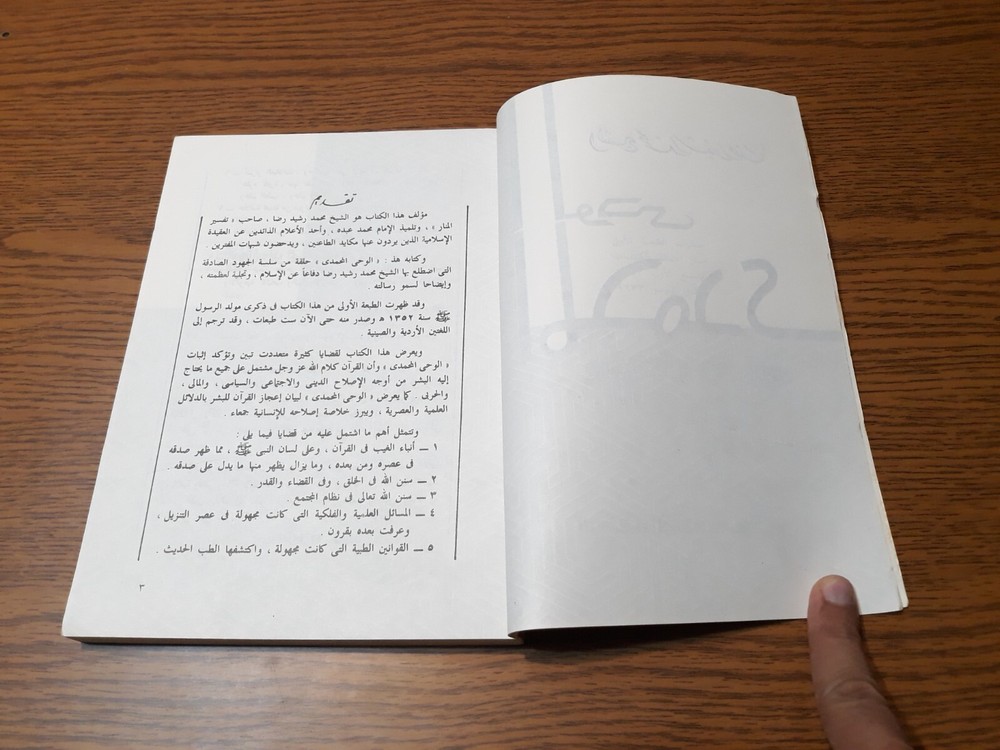 تقديم
مؤلف هذا الكتاب هو الشيخ محمد رشيد رضا ، صاحب « تفسير
المنار » ، وتلميذ الإمام محمد عبده ، وأحد الأعلام الذائدين عن العقيدة
الإسلامية الذين يردون عنها مكايد الطاعنين ، ويدحضون شبهات المفترين .
وكتابه هذ : « الوحى المحمدى » حلقة من سلسة الجهود الصادقة
التى اضطلع بها الشيخ محمد رشيد رضا دفاعاً عن الإسلام ، وتجلية لعظمته ،
وإيضاحا لسمو رسالته .
وقد ظهرت الطبعة الأولى من هذا الكتاب فى ذكرى مولد الرسول
ﷺ سنة ١٣٥٢ ه وصدر منه حتى الآن ست طبعات ، وقد ترجم إلى
اللغتين الأردية والصينية .
ويعرض هذا الكتاب لقضايا كثيرة متعددت تبين وتؤكد إثبات
« الوحى المحمدى » وأن القرآن كلام الله عز وجل مشتمل على جميع ما يحتاج
إليه البشر من أوجه الإصلاح الدينى والاجتماعى والسياسى ، والمالى ،
والحربى . كما يعرض « الوحى المحمدى » لبيان إعجاز القرآن للبشر بالدلائل
العلمية والعصرية ، ويبرز خلاصة إصلاحه للإنسانية جمعاء .
وتتمثل أهم ما اشتمل عليه من قضايا فيما يلى :
١ ــ أنباء الغيب فى القرآن ، وعلى لسان النبى ﷺ ، مما ظهر صدقه
فى عصره ومن بعده ، وما يزال يظهر منها ما يدل على صدقه .
٢ ــ سنن الله فى الخلق ، وفى القضاء والقدر .
٣ ــ سنن الله تعالى فى نظام المجتمع .
٤ ــ المسائل العلمية والفلكية التى كانت مجهولة فى عصر التنزيل ،
وعرفت بعده بقرون .
٥ ــ القوانين الطبية التى كانت مجهولة ، واكتشفها الطب الحديث .
٣